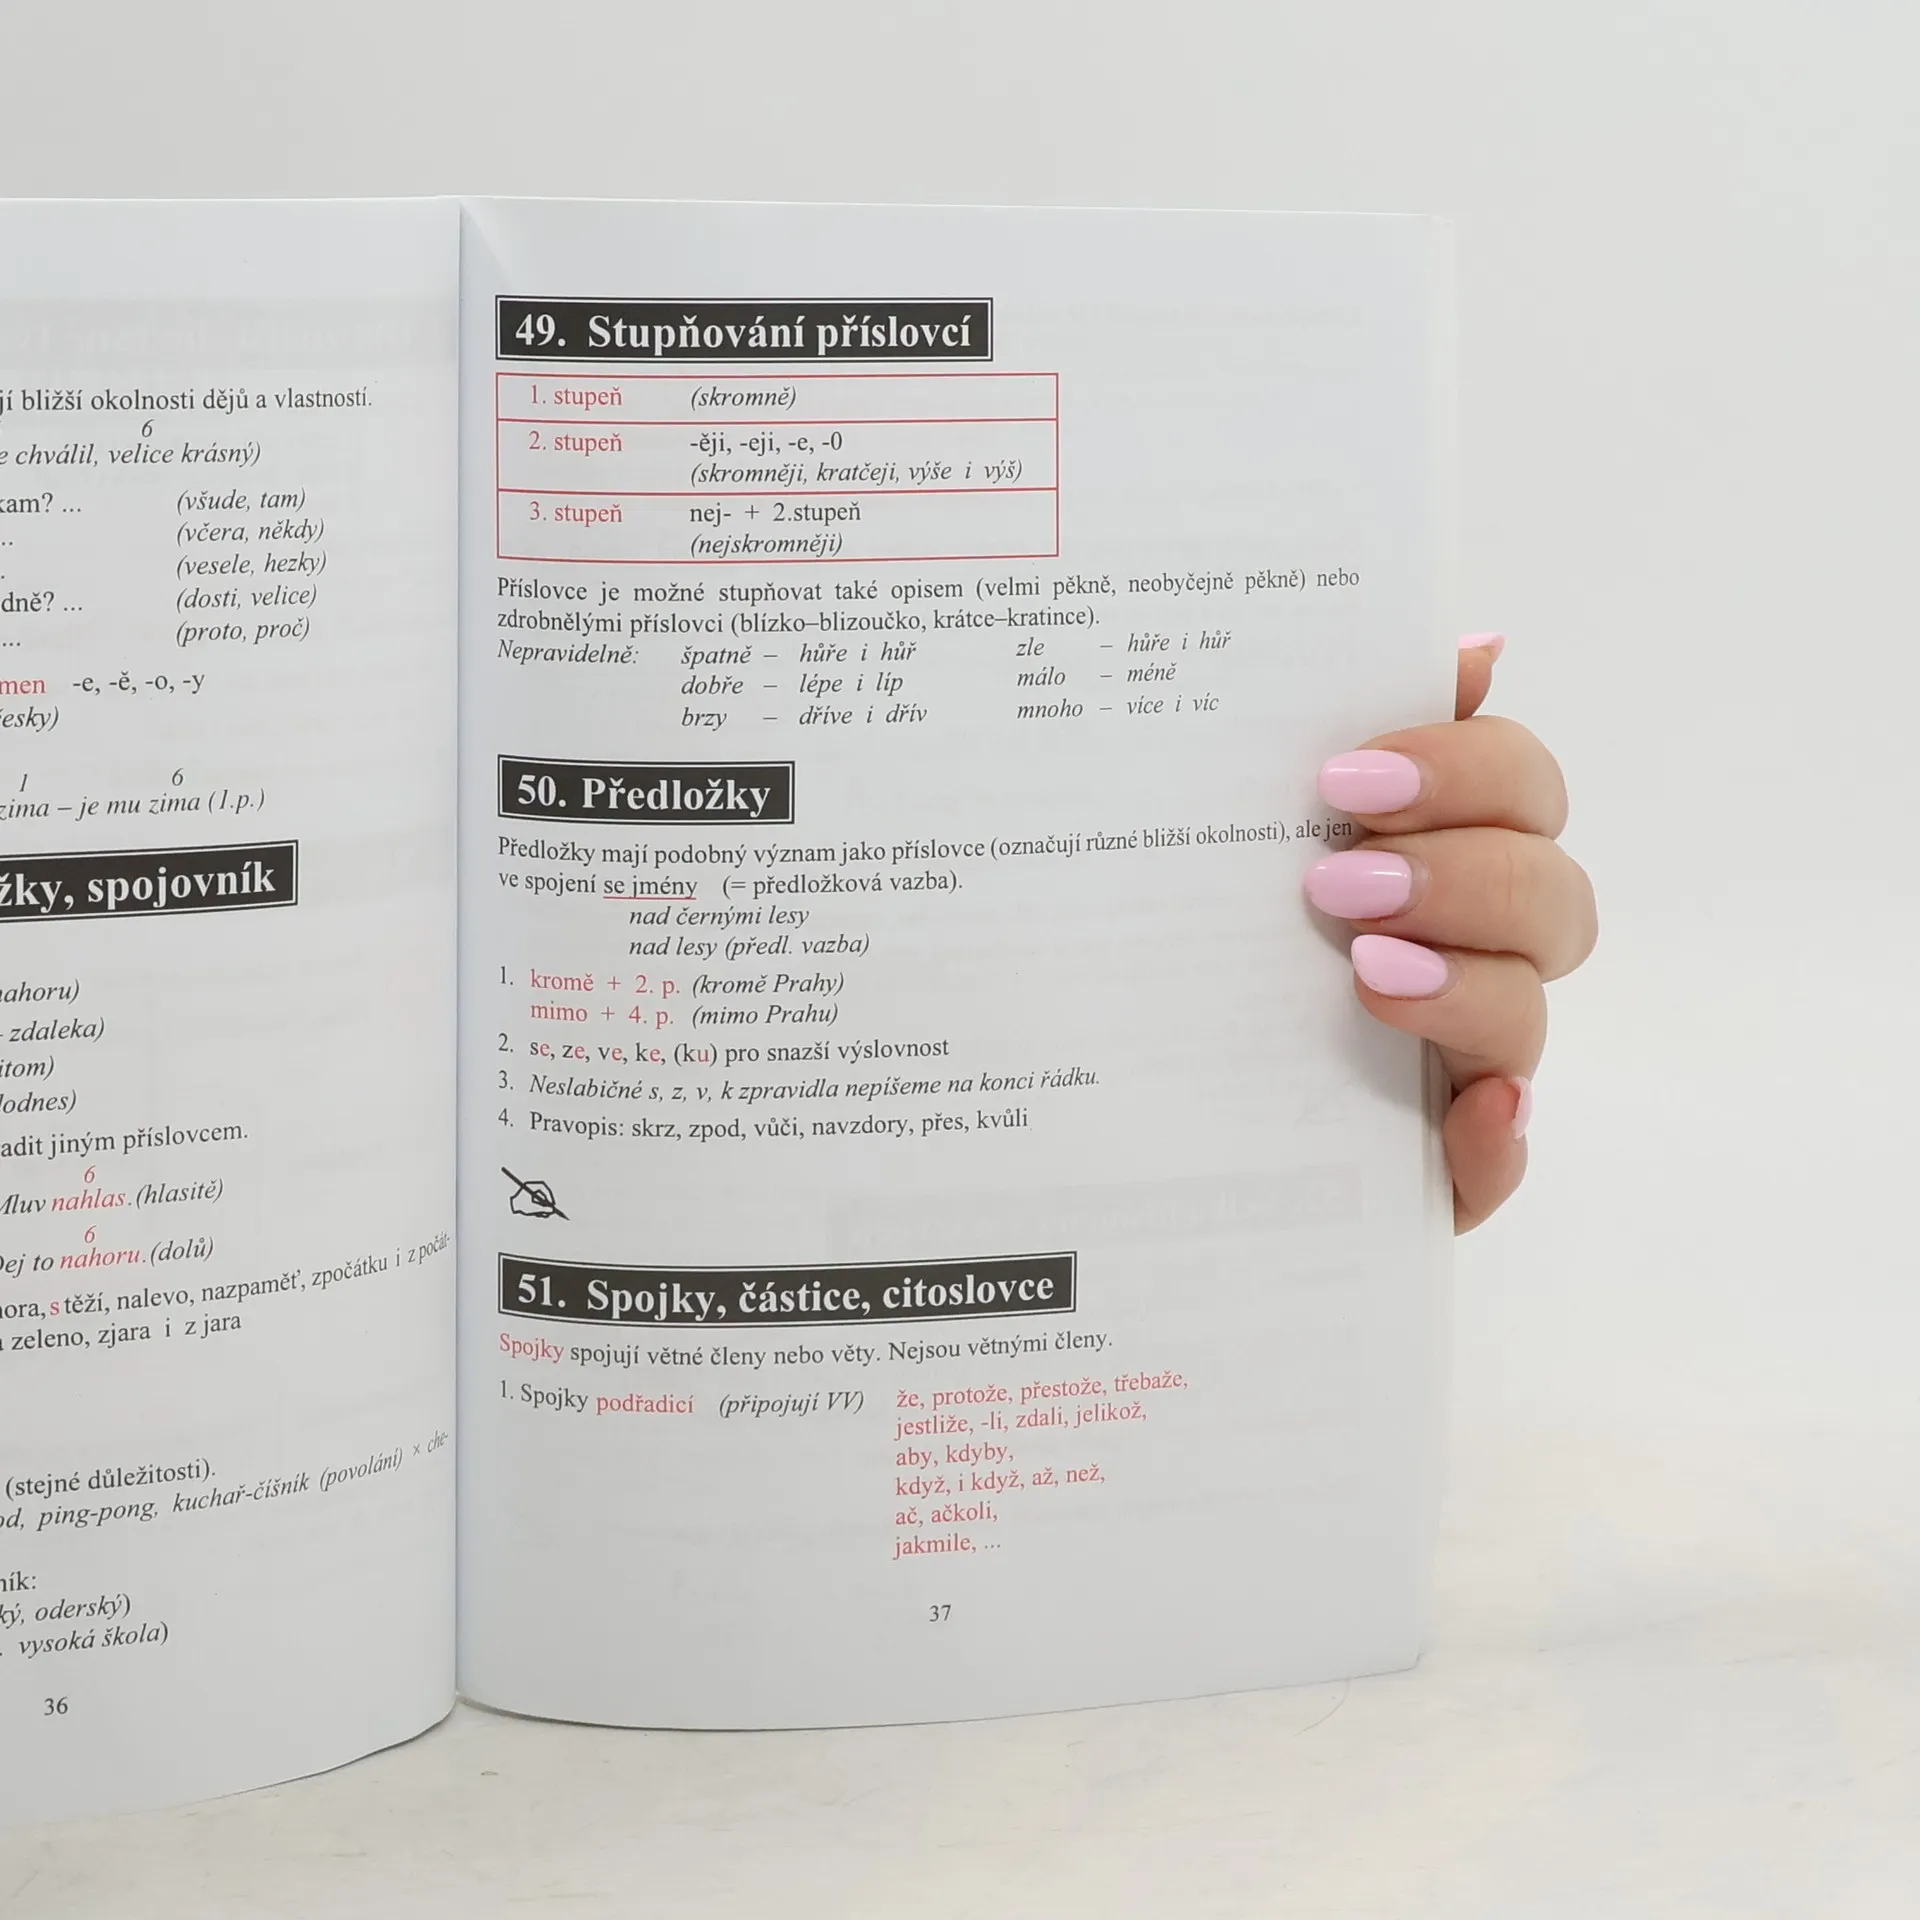 jí bližší okolnosti dějů a vlastností.
6
chválil, velice krásný)
kam? ... (všude, tam)
.. (včera, někdy)
. (vesele, hezky)
... (dosti, velice)
... (proto, proč)
-e, -ě, -o, -y
1 6
zima – je mu zima (1.p.)
spojovník
nahoru)
- zdaleka)
jiným příslovcem.
6
Mluv nahlas. (hlasitě)
6
Dej to nahoru. (dolů)
s těží, nalevo, nazpaměť, zpočátku i z počát-
zeleno, zjara i z jara
(stejné důležitosti).
ping-pong, kuchař-číšník (povolání) × che-
oderský)
. vysoká škola)
36
49. Stupňování příslovcí
1. stupeň (skromně)
2. stupeň -ěji, -eji, -e, -0
(skromněji, kratčeji, výše i výš)
3. stupeň nej- + 2.stupeň
(nejskromněji)
Příslovce je možné stupňovat také opisem (velmi pěkně, neobyčejně pěkně) nebo
zdrobnělými příslovci (blízko–blizoučko, krátce–kratince).
Nepravidelně: špatně – hůře i hůř zle – hůře i hůř
dobře – lépe i líp málo – méně
brzy – dříve i dřív mnoho – více i víc
50. Předložky
Předložky mají podobný význam jako příslovce (označují různé bližší okolnosti), ale jen
ve spojení se jmény (= předložková vazba).
nad černými lesy
nad lesy (předl. vazba)
1. kromě + 2. p. (kromě Prahy)
mimo + 4. p. (mimo Prahu)
2. se, ze, ve, ke, (ku) pro snazší výslovnost
3. Neslabičné s, z, v, k zpravidla nepíšeme na konci řádku.
4. Pravopis: skrz, zpod, vůči, navzdory, přes, kvůli
51. Spojky, částice, citoslovce
Spojky spojují větné členy nebo věty. Nejsou větnými členy.
1. Spojky podřadicí (připojují VV) že, protože, přestože, třebaže,
jestliže, -li, zdali, jelikož,
aby, kdyby,
když, i když, až, než,
ač, ačkoli,
jakmile, ...
37